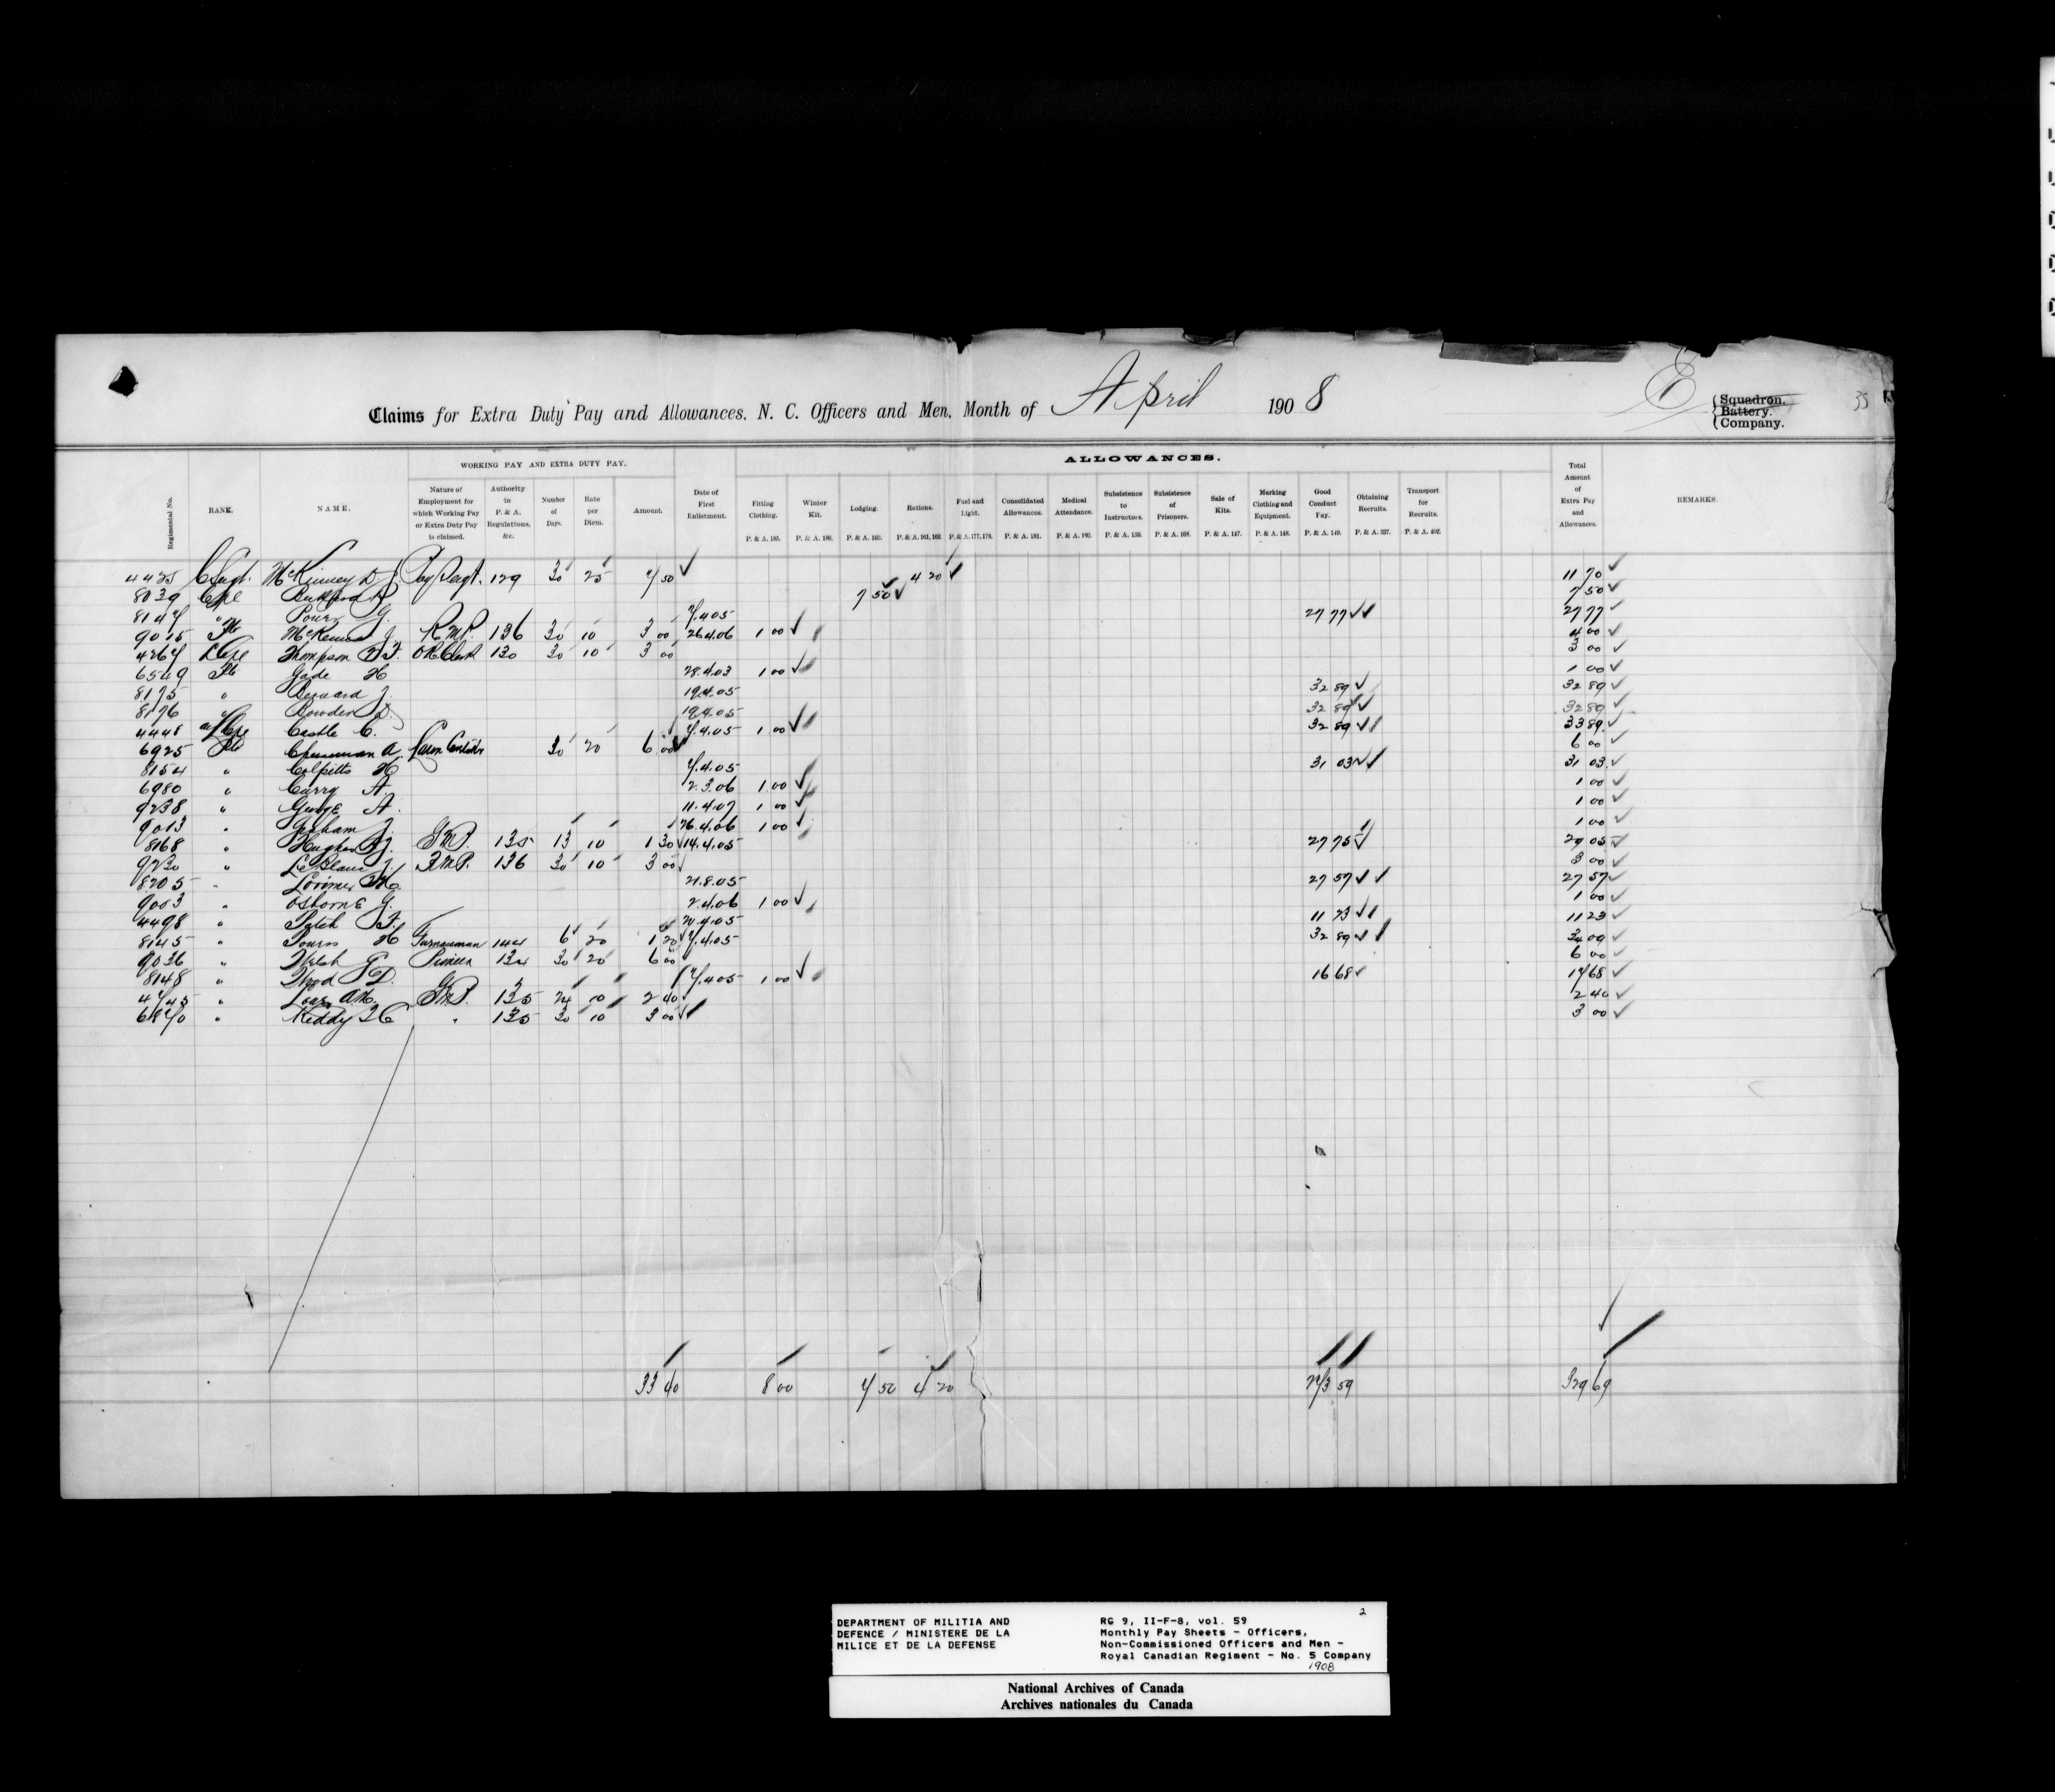 Claims for Extra Duty Pay and Allowances, N. C. Officers and Men, Month of April 1908 E (Squadron. (Battery. (Company. 35
WORKING PAY AND EXTRA DUTY PAY.
ALLOWANCES.
Regimental No.
RANK.
NAME.
Nature of Employment for which Working Pay or Extra Duty Pay is claimed.
Authority in P. & A. Regulations, &c.
Number of Days.
Rate per Diem.
Amount.
Date of First Enlistment.
Fitting Clothing. P. & A. 185.
Winter Kit. P. & A. 186.
Lodging. P. & A. 160.
Rations. P. & A. 161, 162.
Fuel and Light. P. & A. 177, 178.
Consolidated Allowances. P. & A. 181.
Medical Attendance. P. & A. 180.
Subsistence to Instructors. P. & A. 159.
Subsistence of Prisoners. P. & A. 168.
Sale of Kits. P. & A. 147.
Marking Clothing and Equipment. P. & A. 148.
Good Conduct Pay. P. & A. 149.
Obtaining Recruits. P. & A. 337.
Transport for Recruits. P. & A. 402.
Total Amount of Extra Pay and Allowances.
REMARKS.
4425 C Sergt. McKinney D J Pay Sergt. 129 30 25 7 50 4 20 11 70
8039 Cpl 7 50 7 50
8147 " G. 7.4.05 27 77 27 77
9015 Pte McKenna J. R.M.P. 136 30 10 3 00 26.4.06 1 00 4 00
4267 L Cpl Thompson O R Clerk 130 30 10 3 00 3 00
6549 Pte Gade H 28.4.03 1 00 1 00
8175 " Bernard J. 19.4.05 32 89 32 89
8176 " Bowden 19.4.05 32 89 32 89
4448 a/Cpl Castle C. 7.4.05 1 00 32 89 33 89
6925 Pte Chessman A. 30 20 6 00 6 00
8154 " Colpitts H 7.4.05 31 03 31 03
6980 " Curry A 2.3.06 1 00 1 00
9238 " George A. 11.4.07 1 00 1 00
9013 " Graham J. 26.4.06 1 00 1 00
8168 " Hughes G.M.P. 135 13 10 1 30 14.4.05 27 75 29 05
9230 " LeBlanc J. R.M.P. 136 30 10 3 00 3 00
8205 " Lorimer 21.8.05 27 57 27 57
9003 " Osborne G. 2.4.06 1 00 1 00
4498 " Patch F. 11 23 11 23
8145 " H Furnaceman 144 6 20 1 20 7.4.05 32 89 34 09
9036 " Welsh Pioneer 134 30 20 6 00 6 00
8148 " Wood 7.4.05 1 00 16 68 17 68
4745 " G.M.P. 135 24 10 2 40 2 40
" Keddy " 135 30 10 3 00 3 00
33 40 8 00 7 50 4 20 273 59 329 69
DEPARTMENT OF MILITIA AND DEFENCE / MINISTERE DE LA MILICE ET DE LA DEFENSE
RG 9, II-F-8, vol. 59 2
Monthly Pay Sheets - Officers,
Non-Commissioned Officers and Men -
Royal Canadian Regiment - No. 5 Company
1908
National Archives of Canada
Archives nationales du Canada